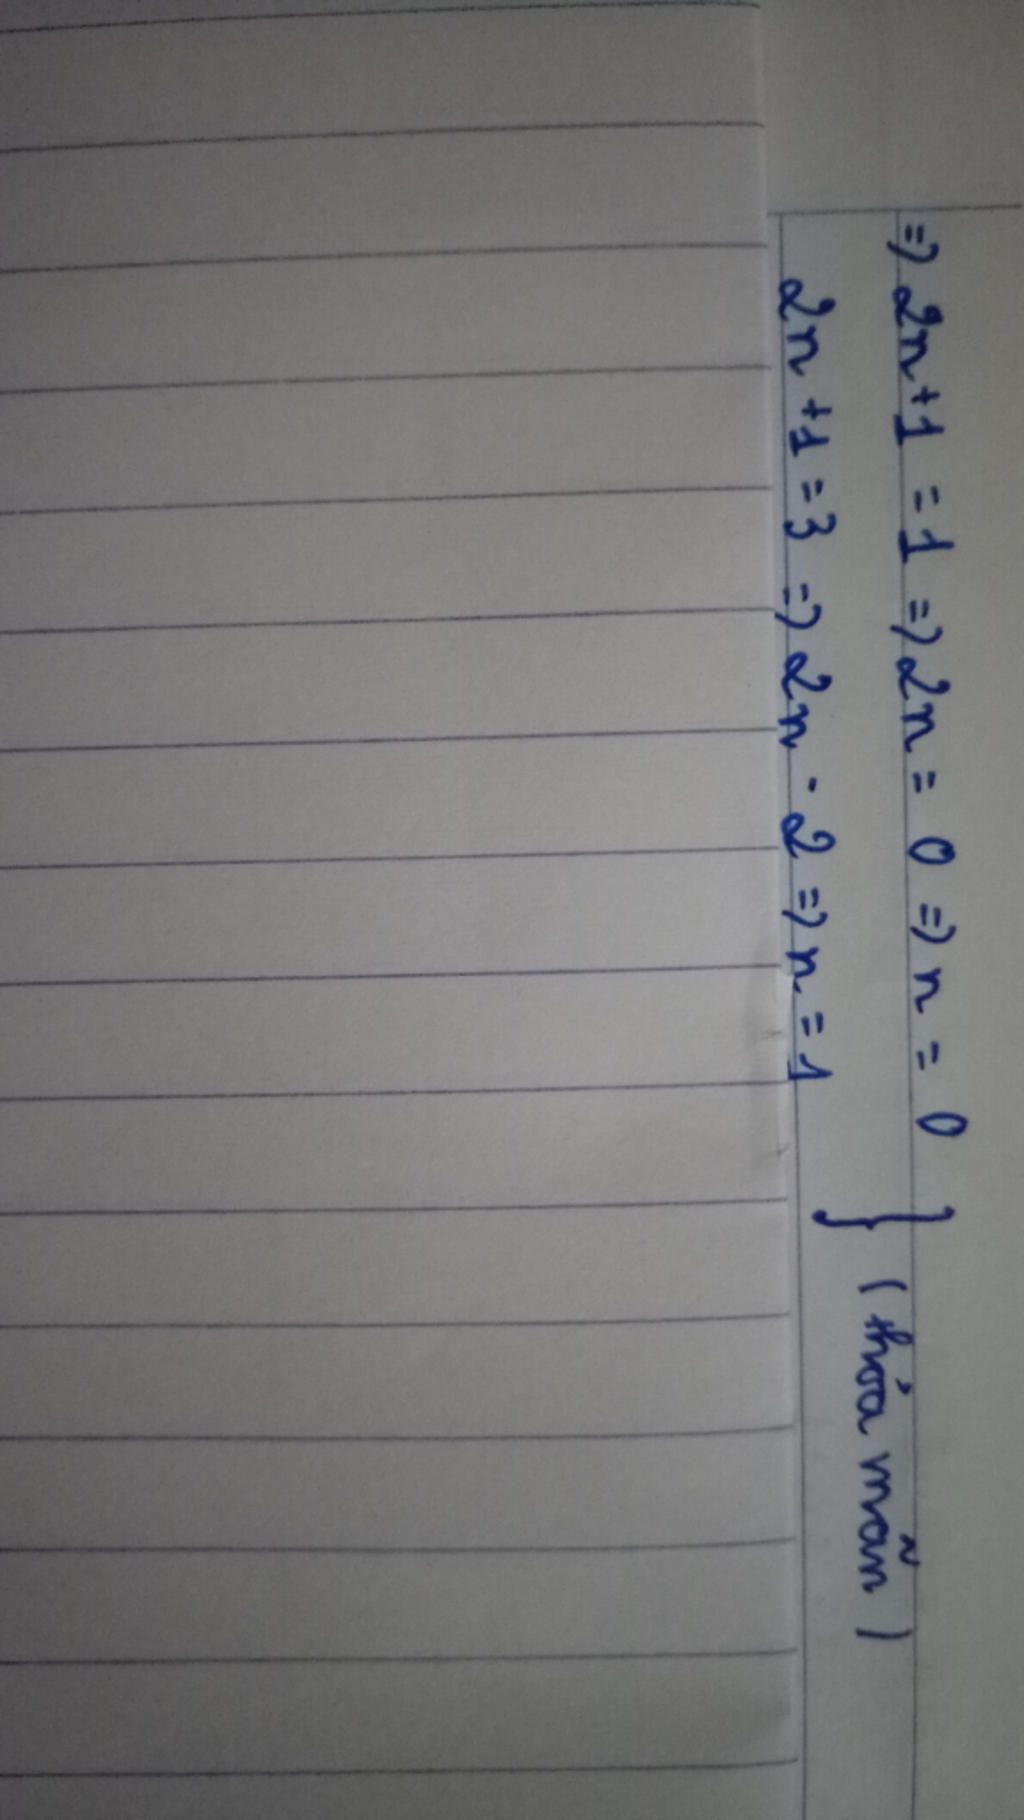 => 2n+1 = 1 => 2n = 0 => n = 0
2n +1 = 3 => 2n = 2 => n = 1 } (thỏa mãn)